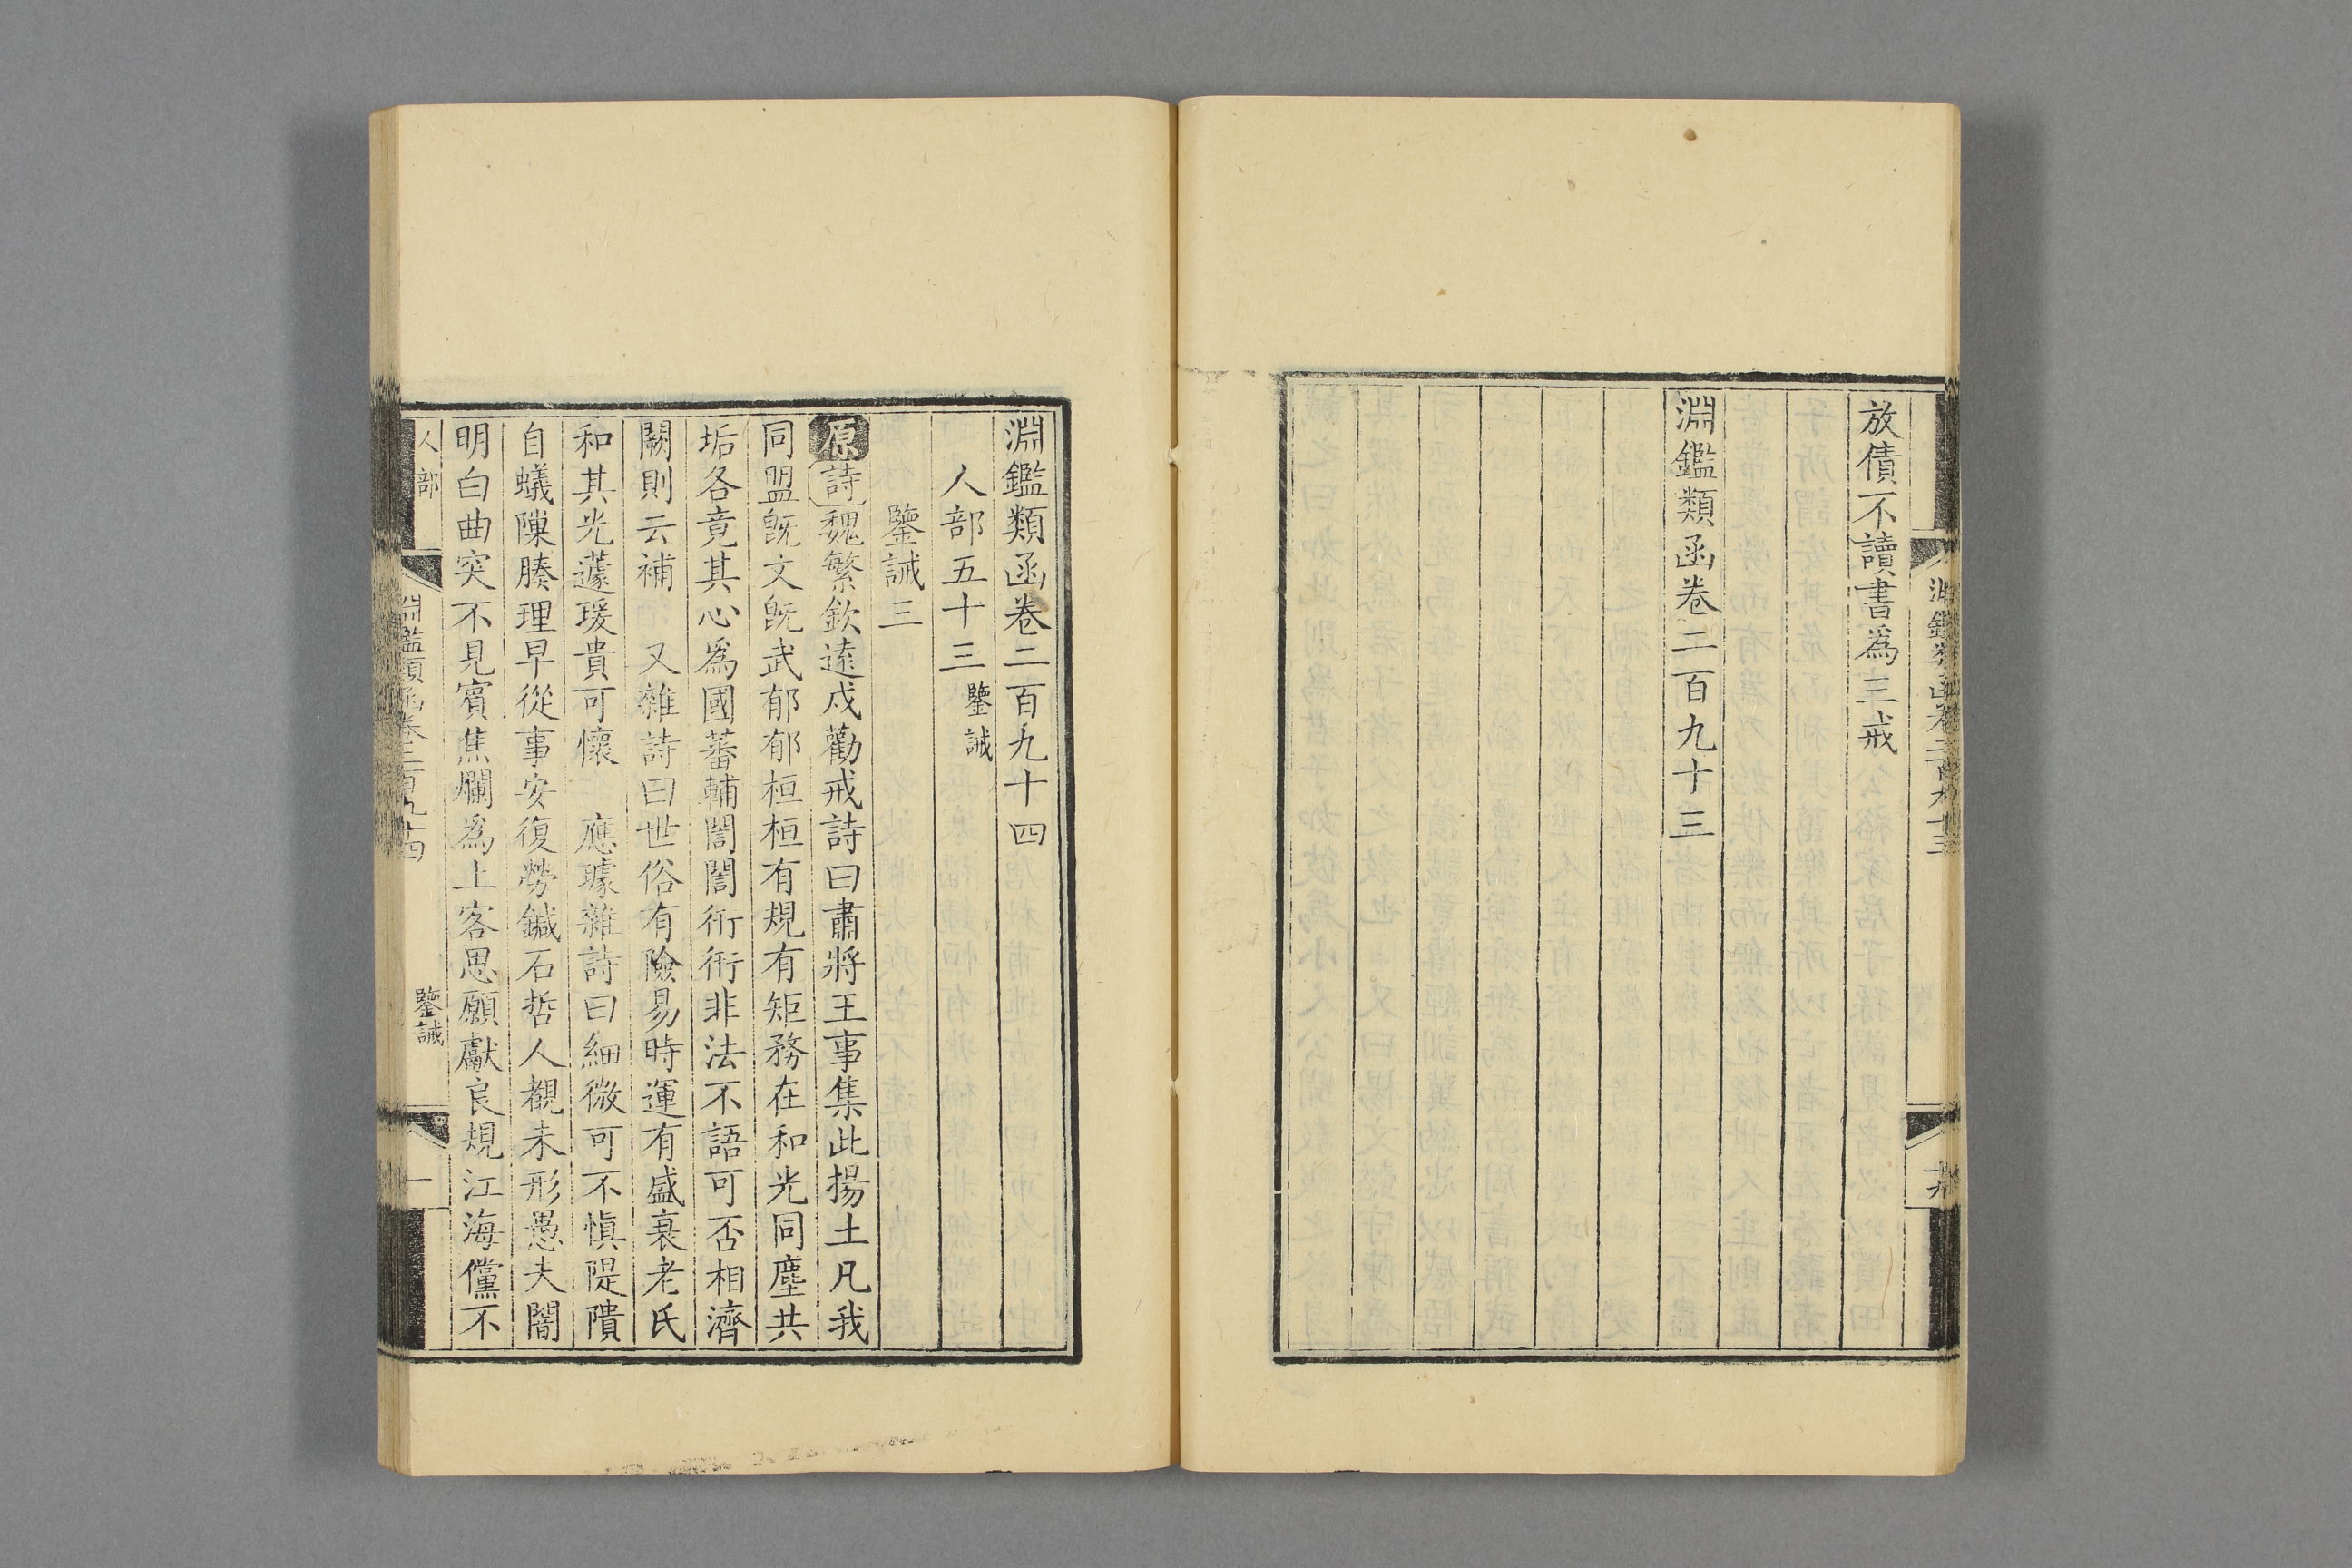 放債不讀書爲三戒
淵鑑類函卷二百九十三
淵鑑類函卷二百九十三
十九
淵鑑類函卷二百九十四
人部五十三 鑒誡
鑒誡三
原詩魏繁欽遠戍勸戒詩曰肅將王事集此揚土凡我
同盟旣文旣武郁郁桓桓有規有矩務在和光同塵共
垢各竟其心爲國蕃輔誾誾衎衎非法不語可否相濟
闕則云補 又雜詩曰世俗有險易時運有盛衰老氏
和其光蘧瑗貴可懷 應璩雜詩曰細微可不愼隄隤
自蟻隟腠理早從事安復勞鍼石哲人覩未形愚夫闇
明白曲突不見賓焦爛爲上客思願獻良規江海儻不
人部
淵鑑類函卷二百九十四
鑒誡
一